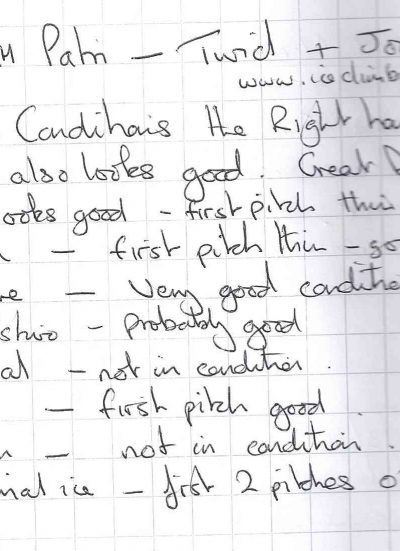 M Patri - Twid + Jo
www.iceclimb
Conditions the Right ha
also looks good. Great
ooks good - first pitch thin
- first pitch thin - so
re - Very good conditio
shiro - probably good
al - not in condition.
- first pitch good.
n - not in condition.
inal ice - first 2 pitches o